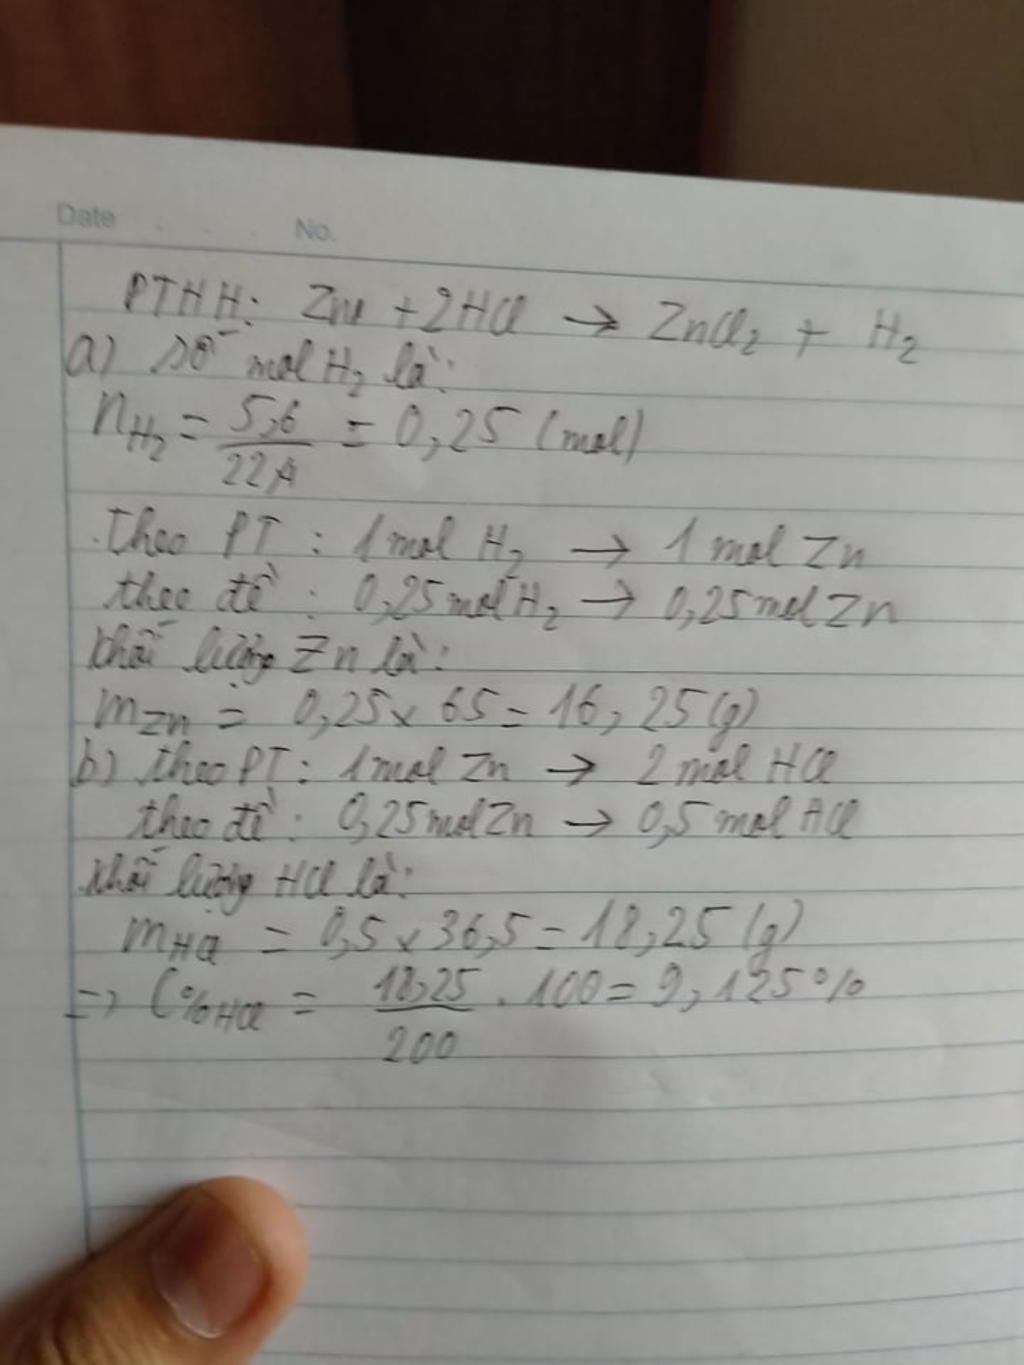 Date . . . No.
PTHH: Zn + 2HCl → ZnCl₂ + H₂
a) số mol H₂ là:
nH₂ = 5,6/22,4 = 0,25 (mol)
Theo PT : 1 mol H₂ → 1 mol Zn
theo đề : 0,25 mol H₂ → 0,25 mol Zn
khối lượng Zn là:
mZn = 0,25 x 65 = 16,25 (g)
b) theo PT : 1 mol Zn → 2 mol HCl
theo đề : 0,25 mol Zn → 0,5 mol HCl
khối lượng HCl là:
mHCl = 0,5 x 36,5 = 18,25 (g)
=> C%HCl = 18,25/200 . 100 = 9,125%